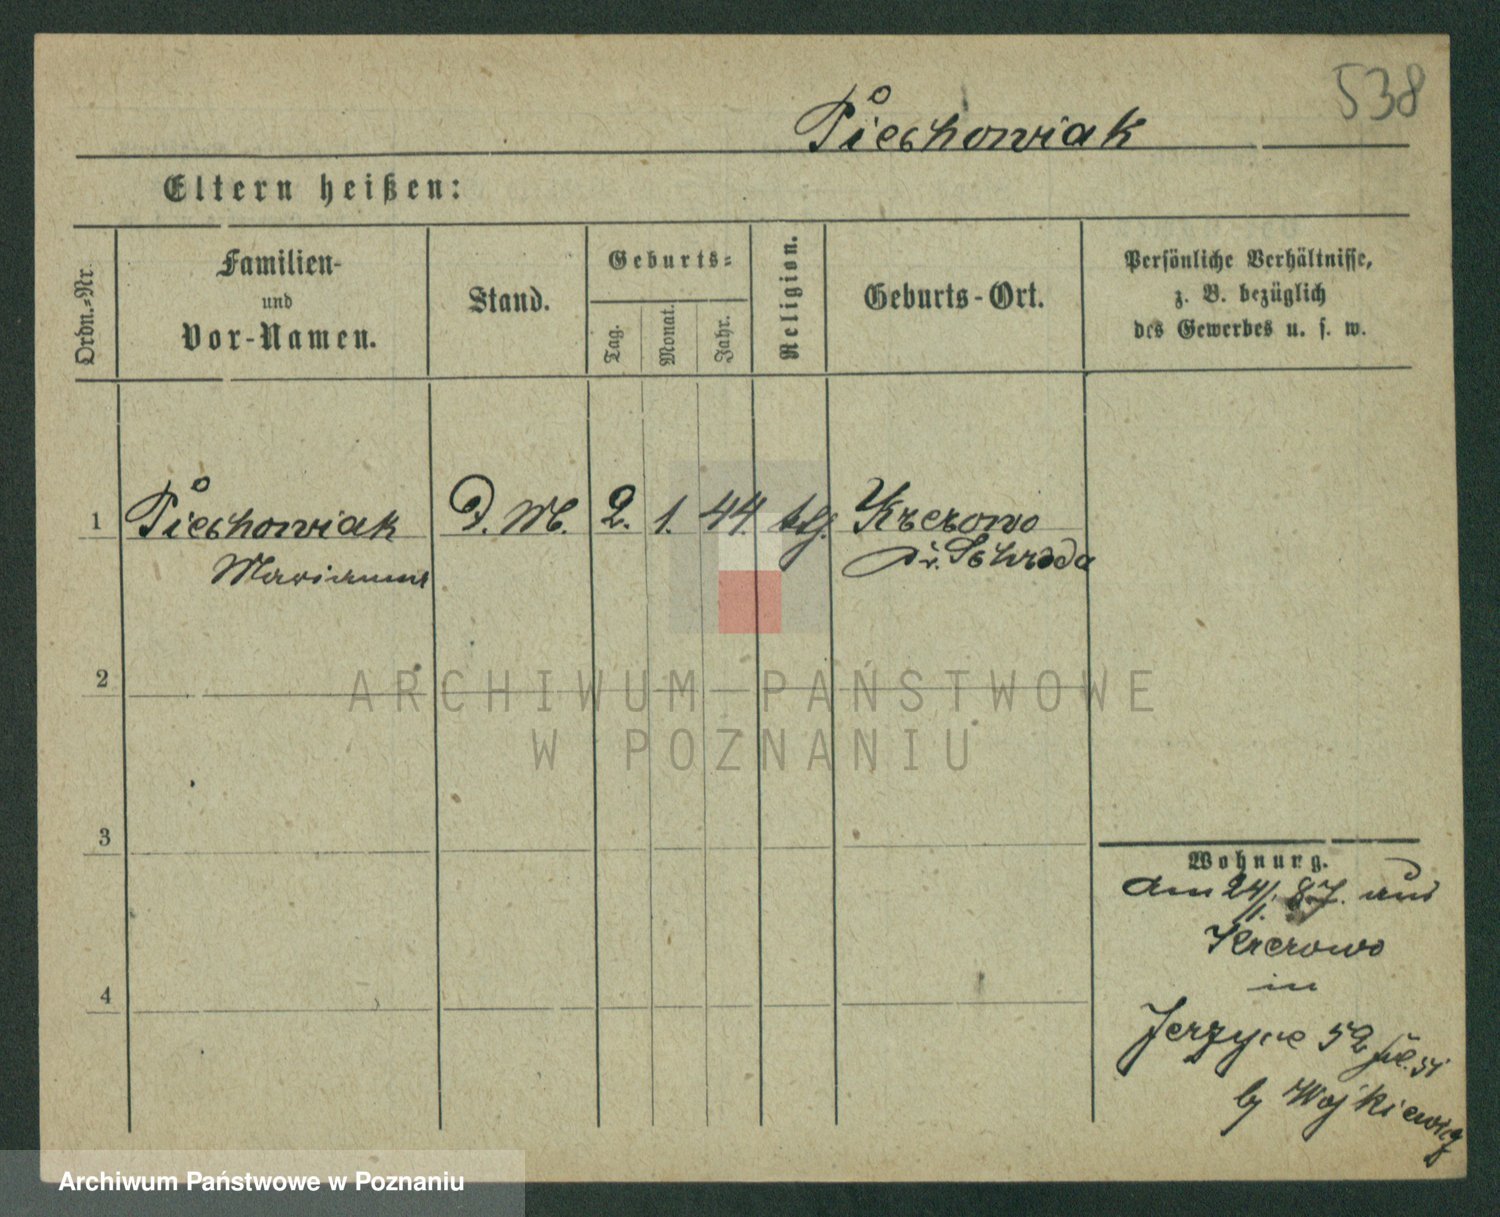 538
Piechowiak
Eltern heißen:
Ordn.-Nr.
Familien-
und
Vor-Namen.
Stand.
Geburts-
Tag.
Monat.
Jahr.
Religion.
Geburts-Ort.
Persönliche Verhältnisse,
z. B. bezüglich
des Gewerbes u. s. w.
1 Piechowiak D. M. 2. 1. 44. ktĥ. Krerowo
Marianna Kr. Schroda
2
ARCHIWUM PAŃSTWOWE
W POZNANIU
3
4
Wohnung.
am 24/1. 87. aus
Krerowo
in
Jerzyce 52
by Wojkiewicz
Archiwum Państwowe w Poznaniu